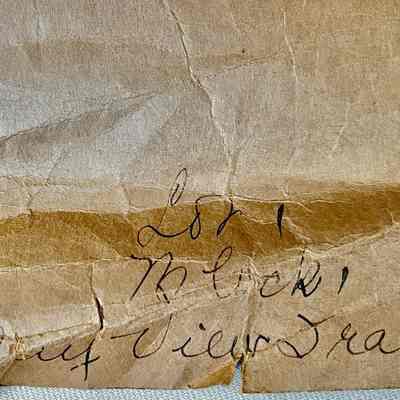 Lot 1
Block 1
View Tra